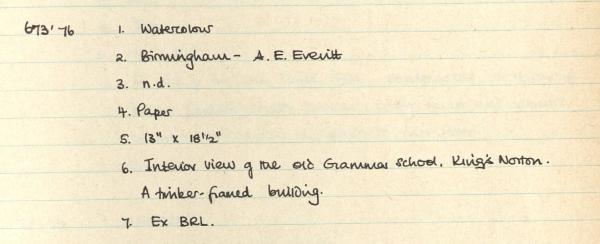 673'76 1. Watercolour
2. Birmingham - A. E. Everitt
3. n.d.
4. Paper
5. 13" x 18 1/2"
6. Interior view of the old Grammar school, King's Norton.
A timber-framed building.
7. Ex BRL.